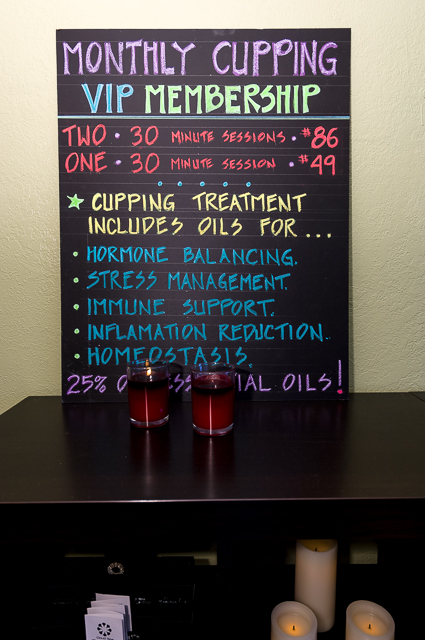 MONTHLY CUPPING
VIP MEMBERSHIP
TWO • 30 MINUTE SESSIONS • $86
ONE • 30 MINUTE SESSION • $49
CUPPING TREATMENT
INCLUDES OILS FOR ...
• HORMONE BALANCING.
• STRESS MANAGEMENT.
• IMMUNE SUPPORT.
• INFLAMATION REDUCTION.
• HOMEOSTASIS.
25% OILS!